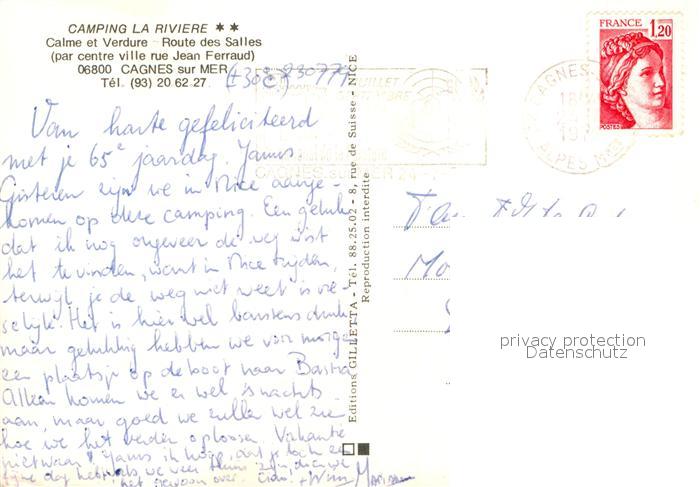 CAMPING LA RIVIERE ★★
Calme et Verdure - Route des Salles
(par centre ville rue Jean Ferraud)
06800 CAGNES sur MER
Tél. (93) 20 62 27
FRANCE
1,20
POSTES
CAGNES
ALPES
CAGNES sur MER
JUILLET
Van harte gefeliciteerd
met je 65e jaardag. Jammer
Gisteren zijn we in Nice aange-
komen op deze camping. Een geluk
dat ik nog ongeveer de weg wist
het te vinden, want in Nice rijden,
terwijl je de weg niet weet is vre-
selijk. Het is hier wel barstens druk
maar gelukkig hebben we voor morgen
een plaatsje op de boot naar Bastia
Alleen komen we er wel 's nachts
aan, maar goed we zullen wel zien
hoe we het verder oplossen. Vakantie
nietwaar? ik hoop, dat je toch een
fijne dag hebt. Als we weer thuis zijn,
het gewoon over. Ciao! Wim
Editions GILLETTA - Tél. 88.25.02 - 8, rue de Suisse - NICE
Reproduction interdite
privacy protection
Datenschutz